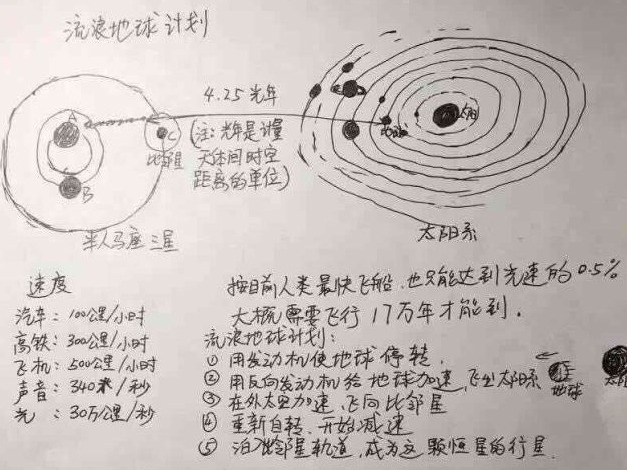 流浪地球计划
4.25光年
A
C
(注:光年是计量
天体间时空
距离的单位)
比邻星
B
太阳
地球
半人马座三星
太阳系
速度
汽车:100公里/小时
高铁:300公里/小时
飞机:500公里/小时
声音:340米/秒
光:30万公里/秒
按目前人类最快飞船,也只能达到光速的0.5%
大概需要飞行17万年才能到.
流浪地球计划:
① 用发动机使地球停转.
② 用反向发动机给地球加速,飞出太阳系
③ 在外太空加速,飞向比邻星
④ 重新自转,开始减速
⑤ 泊入比邻星轨道,成为这颗恒星的行星.
地球